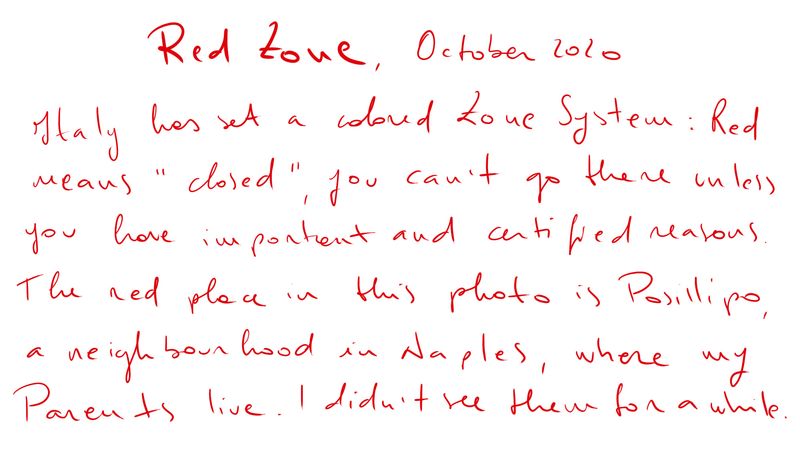 Red Zone, October 2020
Italy has set a colored Zone System: Red
means "closed", you can't go there unless
you have important and certified reasons.
The red place in this photo is Posillipo,
a neighbourhood in Naples, where my
Parents live. I didn't see them for a while.